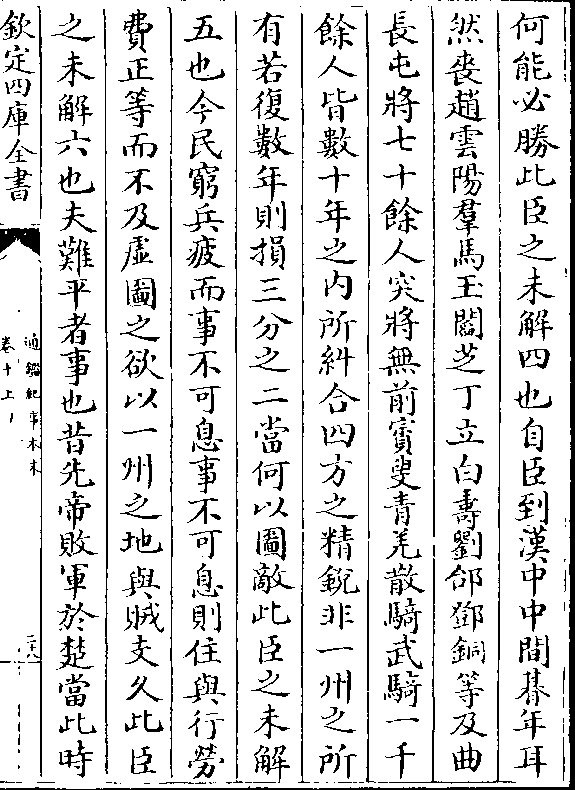 何能必勝此臣之未解四也自臣到漢中中間朞年耳
然喪趙雲陽羣馬玉閻芝丁立白壽劉郃鄧銅等及曲
長屯將七十餘人突將無前賨叟青羌散騎武騎一千
餘人皆數十年之内所糾合四方之精銳非一州之所
有若復數年則損三分之二當何以圖敵此臣之未解
五也今民窮兵疲而事不可息事不可息則住與行勞
費正等而不及虛圖之欲以一州之地與賊支久此臣
之未解六也夫難平者事也昔先帝敗軍於楚當此時
欽定四庫全書
通鑑紀事本末
卷十上